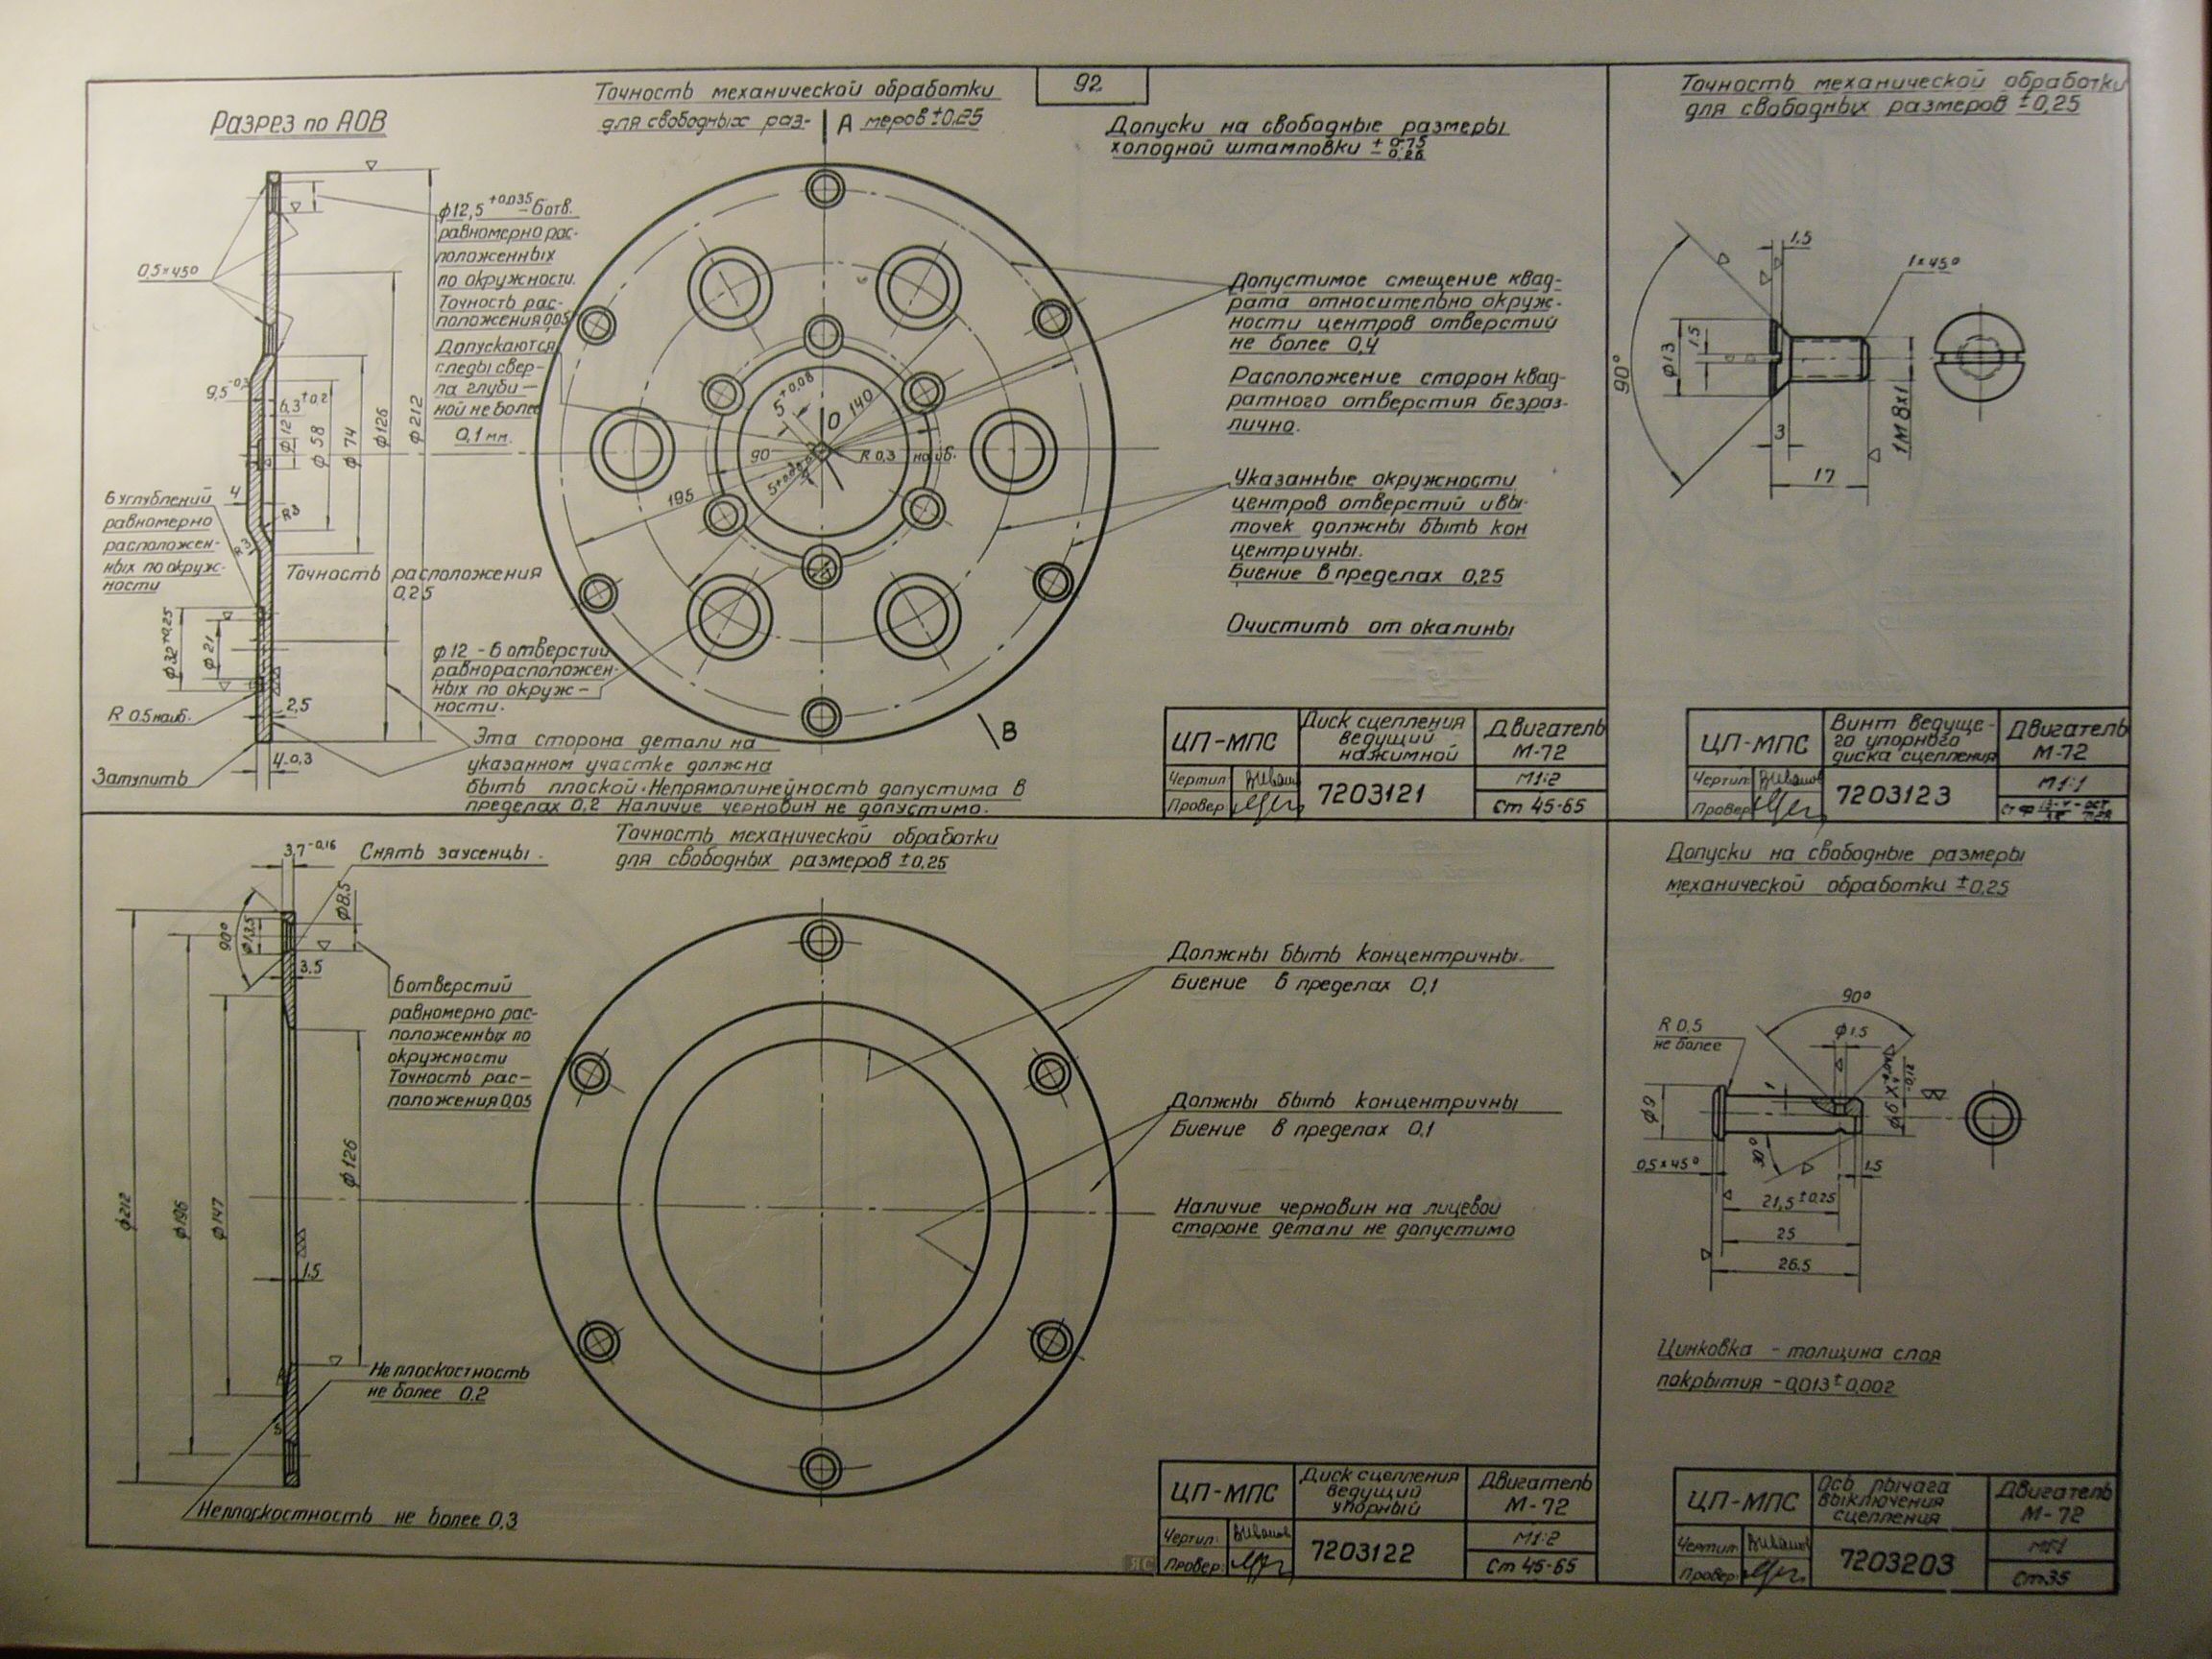 92
Разрез по АОВ
Точность механической обработки
для свободных раз- А меров ±0,25
Допуски на свободные размеры
холодной штамповки ±
0,5×45°
ф12,5 +0,035 – 6 отв.
равномерно рас-
положенных
по окружности.
Точность рас-
положения 0,05
Допускаются
следы свер-
ла глуби-
ной не более
0,1 мм.
9,5 -0,3
6,3 +0,2
ф12
ф58
ф74
ф126
ф212
4
R3
R3
6 углублений
равномерно
расположен-
ных по окруж-
ности
Точность расположения
0,25
ф32 +0,25
ф21
R 0.5 наиб.
2,5
Затупить
4-0,3
ф12 – 6 отверстий
равнорасположен-
ных по окруж-
ности.
Эта сторона детали на
указанном участке должна
быть плоской. Непрямолинейность допустима в
пределах 0,2 Наличие черновин не допустимо.
5 +0,08
О
140
90
R 0,3 наиб.
195
В
Допустимое смещение квад-
рата относительно окруж-
ности центров отверстий
не более 0,4
Расположение сторон квад-
ратного отверстия безраз-
лично.
Указанные окружности
центров отверстий и вы-
точек должны быть кон
центричны.
Биение в пределах 0,25
Очистить от окалины
ЦП-МПС
Диск сцепления
ведущий
нажимной
Двигатель
М-72
Чертил:
Провер:
7203121
М1:2
Ст 45-65
Точность механической обработки
для свободных размеров ±0,25
90°
1.5
1×45°
ф13
1.5
1М8×1
3
17
ЦП-МПС
Винт ведуще-
го упорного
диска сцепления
Двигатель
М-72
Чертил:
Провер:
7203123
М1:1
Точность механической обработки
для свободных размеров ±0,25
3,7-0,16
Снять заусенцы.
ф8,5
90°
ф13,5
3.5
6 отверстий
равномерно рас-
положенных по
окружности
Точность рас-
положения 0,05
ф212
ф196
ф147
ф126
1.5
Не плоскостность
не более 0.2
Неплоскостность не более 0,3
Должны быть концентричны.
Биение в пределах 0,1
Должны быть концентричны
Биение в пределах 0,1
Наличие черновин на лицевой
стороне детали не допустимо
ЦП-МПС
Диск сцепления
ведущий
упорный
Двигатель
М-72
Чертил:
Провер:
7203122
М1:2
Ст 45-65
ЯС
Допуски на свободные размеры
механической обработки ±0,25
90°
R 0.5
не более
ф1.5
1
ф9
0,5×45°
1.5
21,5 ±0,25
25
26.5
Цинковка – толщина слоя
покрытия – 0,013±0,002
ЦП-МПС
Ось рычага
выключения
сцепления
Двигатель
М-72
Чертил:
Провер:
7203203
М1:1
Ст35